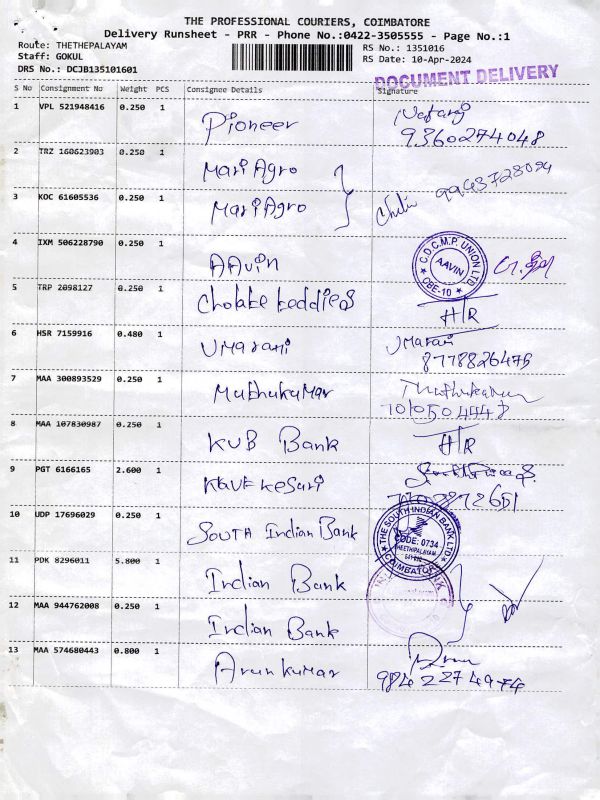 THE PROFESSIONAL COURIERS, COIMBATORE
Delivery Runsheet - PRR - Phone No.:0422-3505555 - Page No.:1
Route: THETHEPALAYAM
RS No.: 1351016
Staff: GOKUL
RS Date: 10-Apr-2024
DRS No.: DCJB135101601
DOCUMENT DELIVERY
S No Consignment No Weight PCS Consignee Details Signature
1 VPL 521948416 0.250 1 Pioneer Nataraj
9360274048
2 TRZ 160623903 0.250 1 Mari Agro
3 KOC 61605536 0.250 1 Mari Agro
4 IXM 506228790 0.250 1 AAvin C.D.C.M.P. UNION LTD. AAVIN CBE-10
5 TRP 2098127 0.250 1 H/R
6 HSR 7159916 0.480 1 UMarani UMarani
8778826475
7 MAA 300893529 0.250 1 Muthukumar
8 MAA 107830987 0.250 1 KVB Bank H/R
9 PGT 6166165 2.600 1
10 UDP 17696029 0.250 1 South Indian Bank THE SOUTH INDIAN BANK LTD
CODE: 0734
THEETHIPALAYAM
COIMBATORE
11 PDK 8296011 5.800 1 Indian Bank
12 MAA 944762008 0.250 1 Indian Bank
13 MAA 574680443 0.800 1 Arunkumar
9842274974